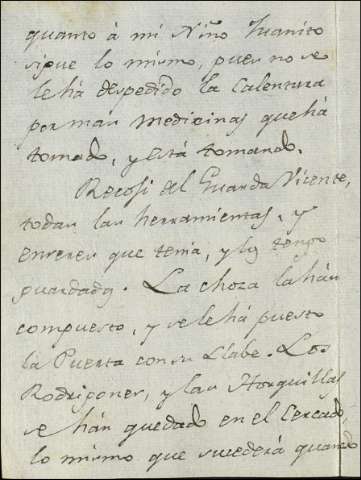 quanto à mi Niño Juanito
sigue lo mismo, pues no se
le há despedido la Calentura
por mas medicinas que há
tomado, y está tomando.
Recosi del Guarda Vicente,
todas las herramientas, y
enseres que tenia, y los tengo
guardados. La choza la hán
compuesto, y se le há puesto
la Puerta con su Llabe. Los
Rodrigones, y las Horquillas
se hán quedado en el Cercado,
lo mismo que sucederá quando